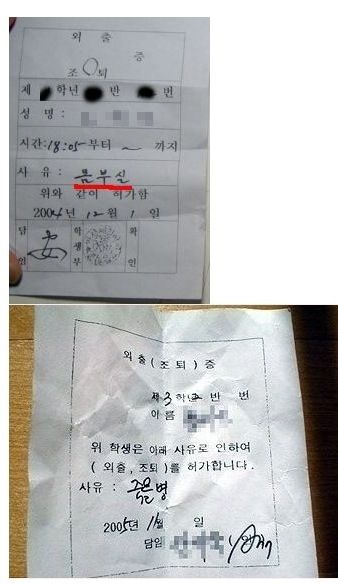 외 출
증
조 퇴
제 학년 반 번
성 명 :
시간:18:05부터 ~ 까지
사 유 : 몸부실
위와 같이 허가함
2004년 12월 1일
담 학 확
생
인 부 인
외 출 ( 조 퇴 ) 증
제3학년 반 번
이 름
위 학생은 아래 사유로 인하여
( 외출 , 조퇴 )를 허가합니다 .
사유 : 죽을병
2005년 11월 일
담임